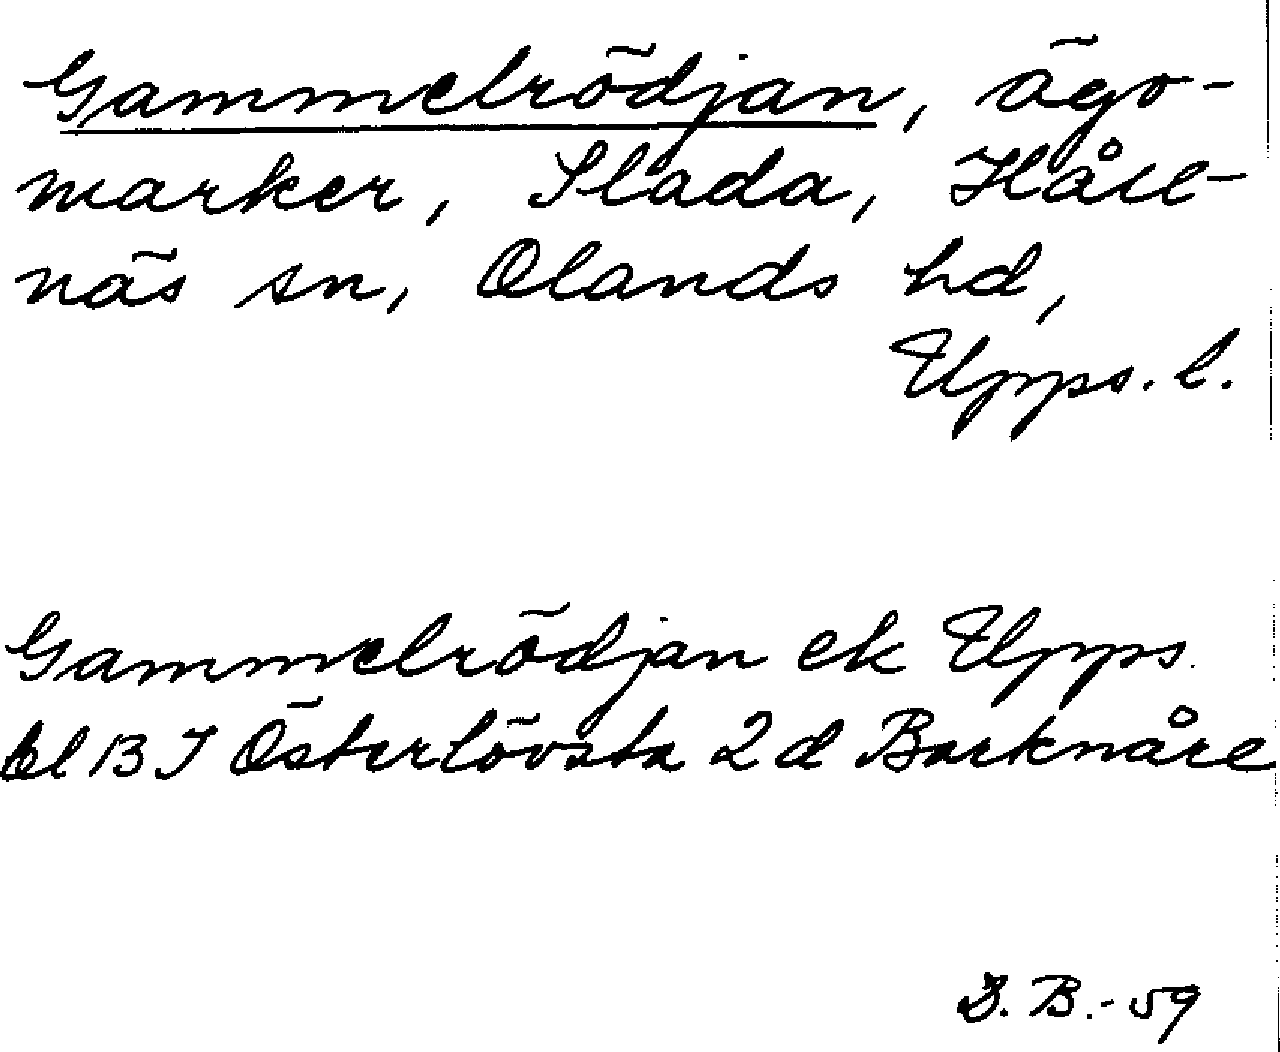 Gammelrödjan, ägo-
marker, Slada, Håll-
näs sn, Olands hd,
Upps. l.
Gammelrödjan ek Upps.
bl B J Österlövsta 2 d Barknåre
B. B.-59